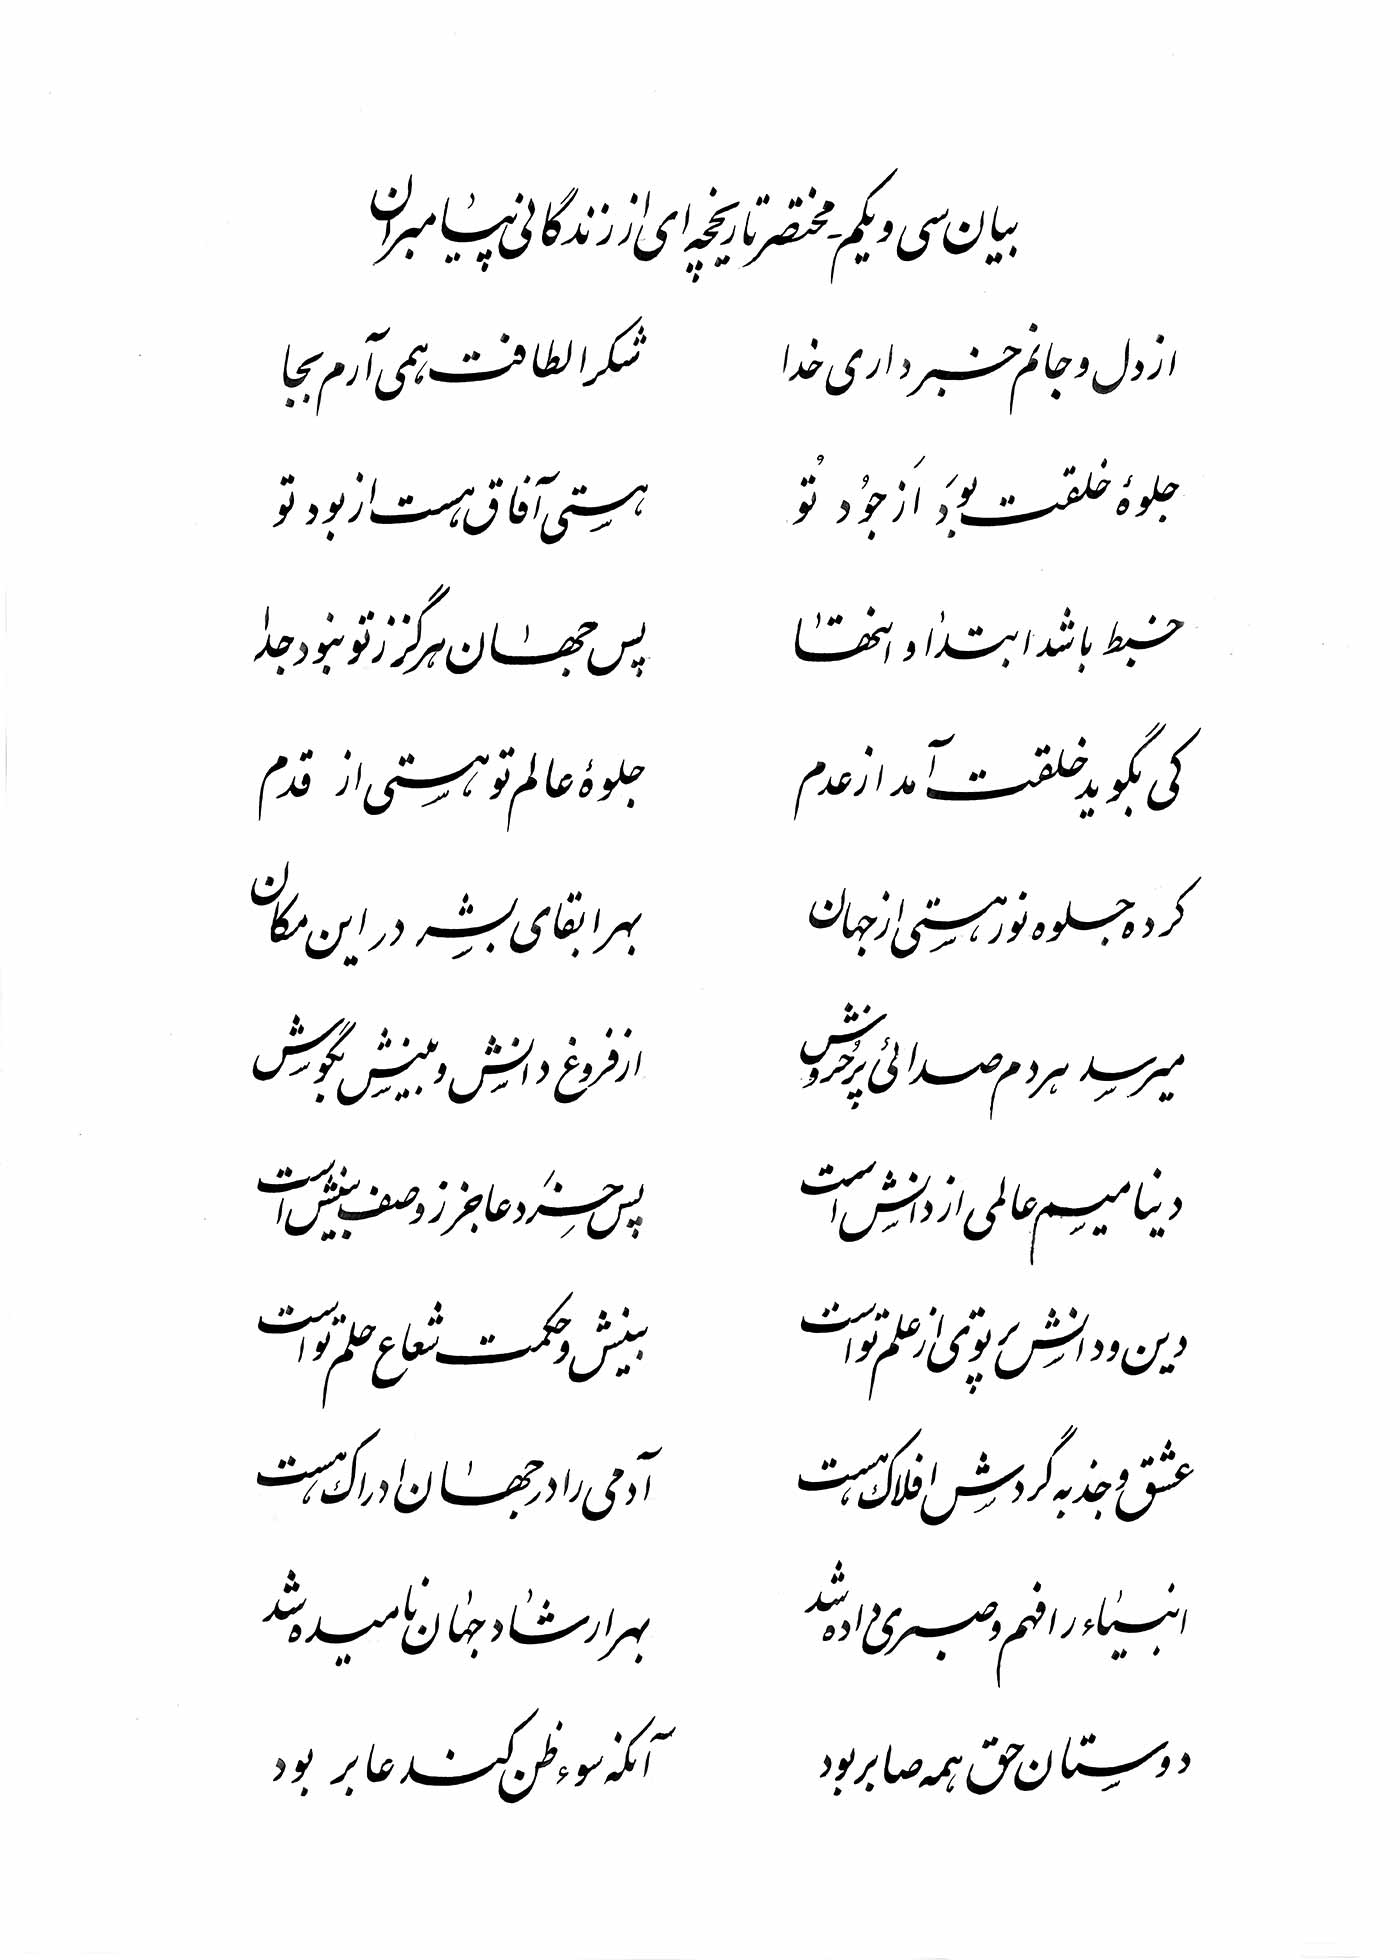 بیان سی و یکم - مختصر تاریخچه ای از زندگانی پیامبران
از دل و جانم خبر داری خدا شکر الطافت همی آرم بجا
جلوهٔ خلقت بوَد اَز جوُد تُو هستی آفاق هست از بود تو
خبط باشد ابتدا و انتها پس جهان هرگز ز تو نبود جدا
کی بگوید خلقت آمد از عدم جلوهٔ عالم تو هستی از قدم
کرده جلوه نور هستی از جهان بهر ابقای بشر در این مکان
میرسد هر دم صدائی پرخُروش از فروغ دانش و بینش بگوش
دینامیسم عالمی از دانش است پس خِرَد عاجز ز وصف بینش است
دین و دانش پرتوی از علم تو است بینش و حکمت شعاع حلم تو است
عشق و جذبه گردش افلاک هست آدمی را در جهان ادراک هست
انبیاء را فهم و صبری داده شد بهر ارشاد جهان نامیده شد
دوستان حق همه صابر بود آنکه سوء ظن کند عابر بود